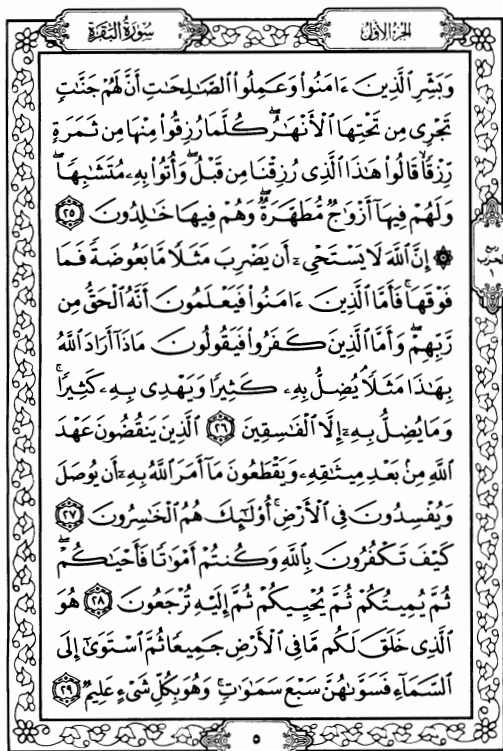 سُورَةُ البَقَرَةِ
الجُزْءُ الأَوَّلُ
وَبَشِّرِ ٱلَّذِينَ ءَامَنُوا۟ وَعَمِلُوا۟ ٱلصَّٰلِحَٰتِ أَنَّ لَهُمْ جَنَّٰتٍ
تَجْرِى مِن تَحْتِهَا ٱلْأَنْهَٰرُ ۖ كُلَّمَا رُزِقُوا۟ مِنْهَا مِن ثَمَرَةٍ
رِّزْقًا ۙ قَالُوا۟ هَٰذَا ٱلَّذِى رُزِقْنَا مِن قَبْلُ ۖ وَأُتُوا۟ بِهِۦ مُتَشَٰبِهًا ۖ
وَلَهُمْ فِيهَآ أَزْوَٰجٌ مُّطَهَّرَةٌ ۖ وَهُمْ فِيهَا خَٰلِدُونَ ٢٥
۞ إِنَّ ٱللَّهَ لَا يَسْتَحْىِۦٓ أَن يَضْرِبَ مَثَلًا مَّا بَعُوضَةً فَمَا
فَوْقَهَا ۚ فَأَمَّا ٱلَّذِينَ ءَامَنُوا۟ فَيَعْلَمُونَ أَنَّهُ ٱلْحَقُّ مِن
رَّبِّهِمْ ۖ وَأَمَّا ٱلَّذِينَ كَفَرُوا۟ فَيَقُولُونَ مَاذَآ أَرَادَ ٱللَّهُ
بِهَٰذَا مَثَلًا ۘ يُضِلُّ بِهِۦ كَثِيرًا وَيَهْدِى بِهِۦ كَثِيرًا ۚ
وَمَا يُضِلُّ بِهِۦٓ إِلَّا ٱلْفَٰسِقِينَ ٢٦ ٱلَّذِينَ يَنقُضُونَ عَهْدَ
ٱللَّهِ مِنۢ بَعْدِ مِيثَٰقِهِۦ وَيَقْطَعُونَ مَآ أَمَرَ ٱللَّهُ بِهِۦٓ أَن يُوصَلَ
وَيُفْسِدُونَ فِى ٱلْأَرْضِ ۚ أُو۟لَٰٓئِكَ هُمُ ٱلْخَٰسِرُونَ ٢٧
كَيْفَ تَكْفُرُونَ بِٱللَّهِ وَكُنتُمْ أَمْوَٰتًا فَأَحْيَٰكُمْ ۖ
ثُمَّ يُمِيتُكُمْ ثُمَّ يُحْيِيكُمْ ثُمَّ إِلَيْهِ تُرْجَعُونَ ٢٨ هُوَ
ٱلَّذِى خَلَقَ لَكُم مَّا فِى ٱلْأَرْضِ جَمِيعًا ثُمَّ ٱسْتَوَىٰٓ إِلَى
ٱلسَّمَآءِ فَسَوَّىٰهُنَّ سَبْعَ سَمَٰوَٰتٍ ۚ وَهُوَ بِكُلِّ شَىْءٍ عَلِيمٌ ٢٩
٥